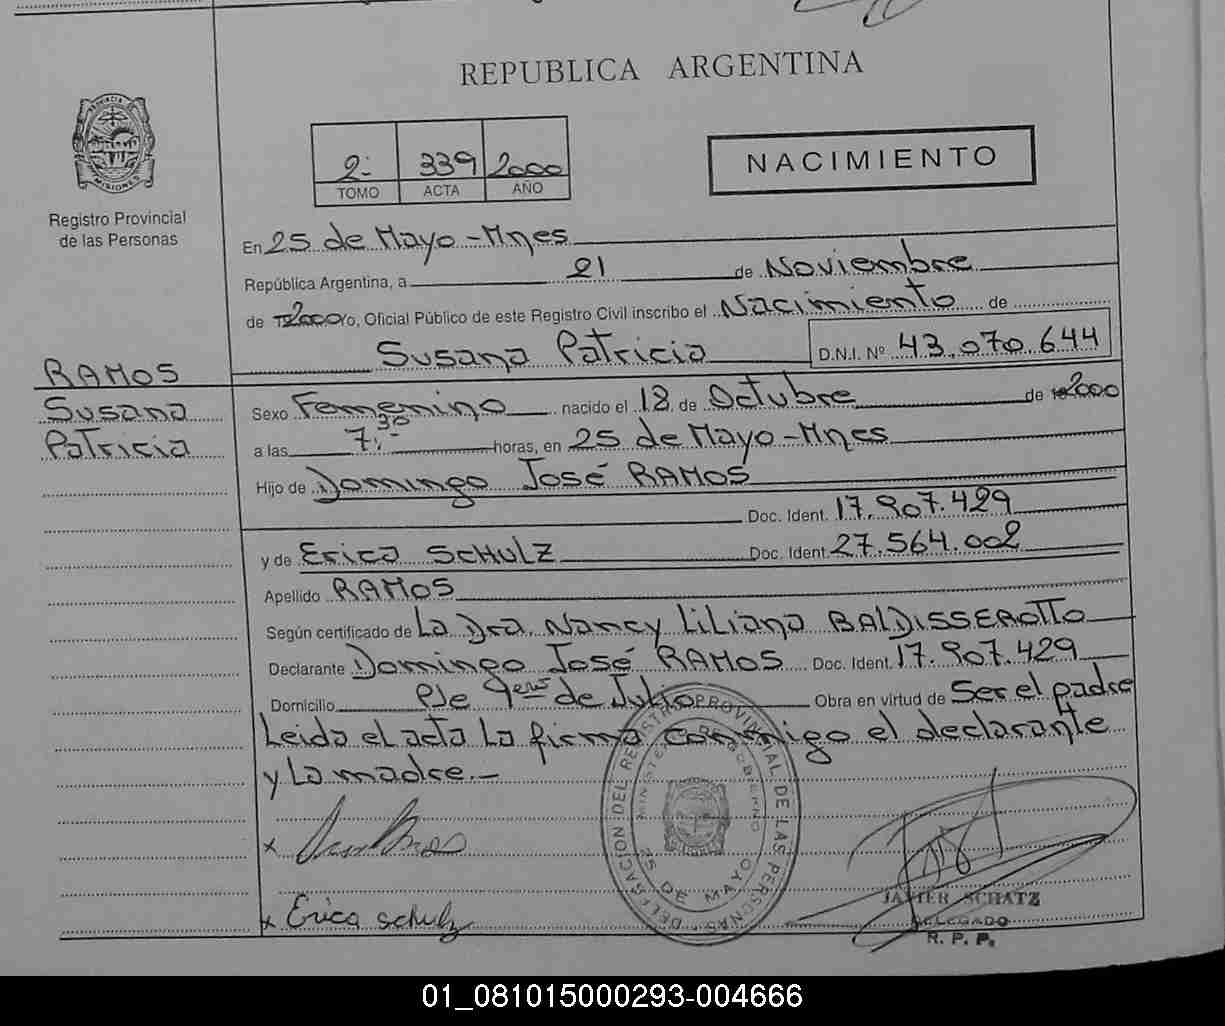 REPUBLICA ARGENTINA
PROVINCIA DE MISIONES
Registro Provincial
de las Personas
2º 339 2000
TOMO ACTA AÑO
NACIMIENTO
En 25 de Mayo - Mnes
República Argentina, a 21 de Noviembre
de 2000 yo, Oficial Público de este Registro Civil inscribo el Nacimiento de
Susana Patricia D.N.I. Nº 43.070.644
RAMOS
Susana
Patricia
Sexo Femenino nacido el 18 de Octubre de 2000
a las 7:30 horas, en 25 de Mayo - Mnes
Hijo de Domingo José RAMOS
Doc. Ident. 17.907.429
y de Erica SCHULZ Doc. Ident. 27.564.002
Apellido RAMOS
Según certificado de La Dra. Nancy Liliana BALDISSEROTTO
Declarante Domingo José RAMOS Doc. Ident. 17.907.429
Domicilio Pje 9 de Julio Obra en virtud de Ser el padre
Leida el acta La firma conmigo el declarante
y La madre.-
DELEGACION DEL REGISTRO PROVINCIAL DE LAS PERSONAS
MINISTERIO DE GOBIERNO
25 DE MAYO
x
x Erica Schulz
JAVIER SCHATZ
DELEGADO
R. P. P.
01_081015000293-004666